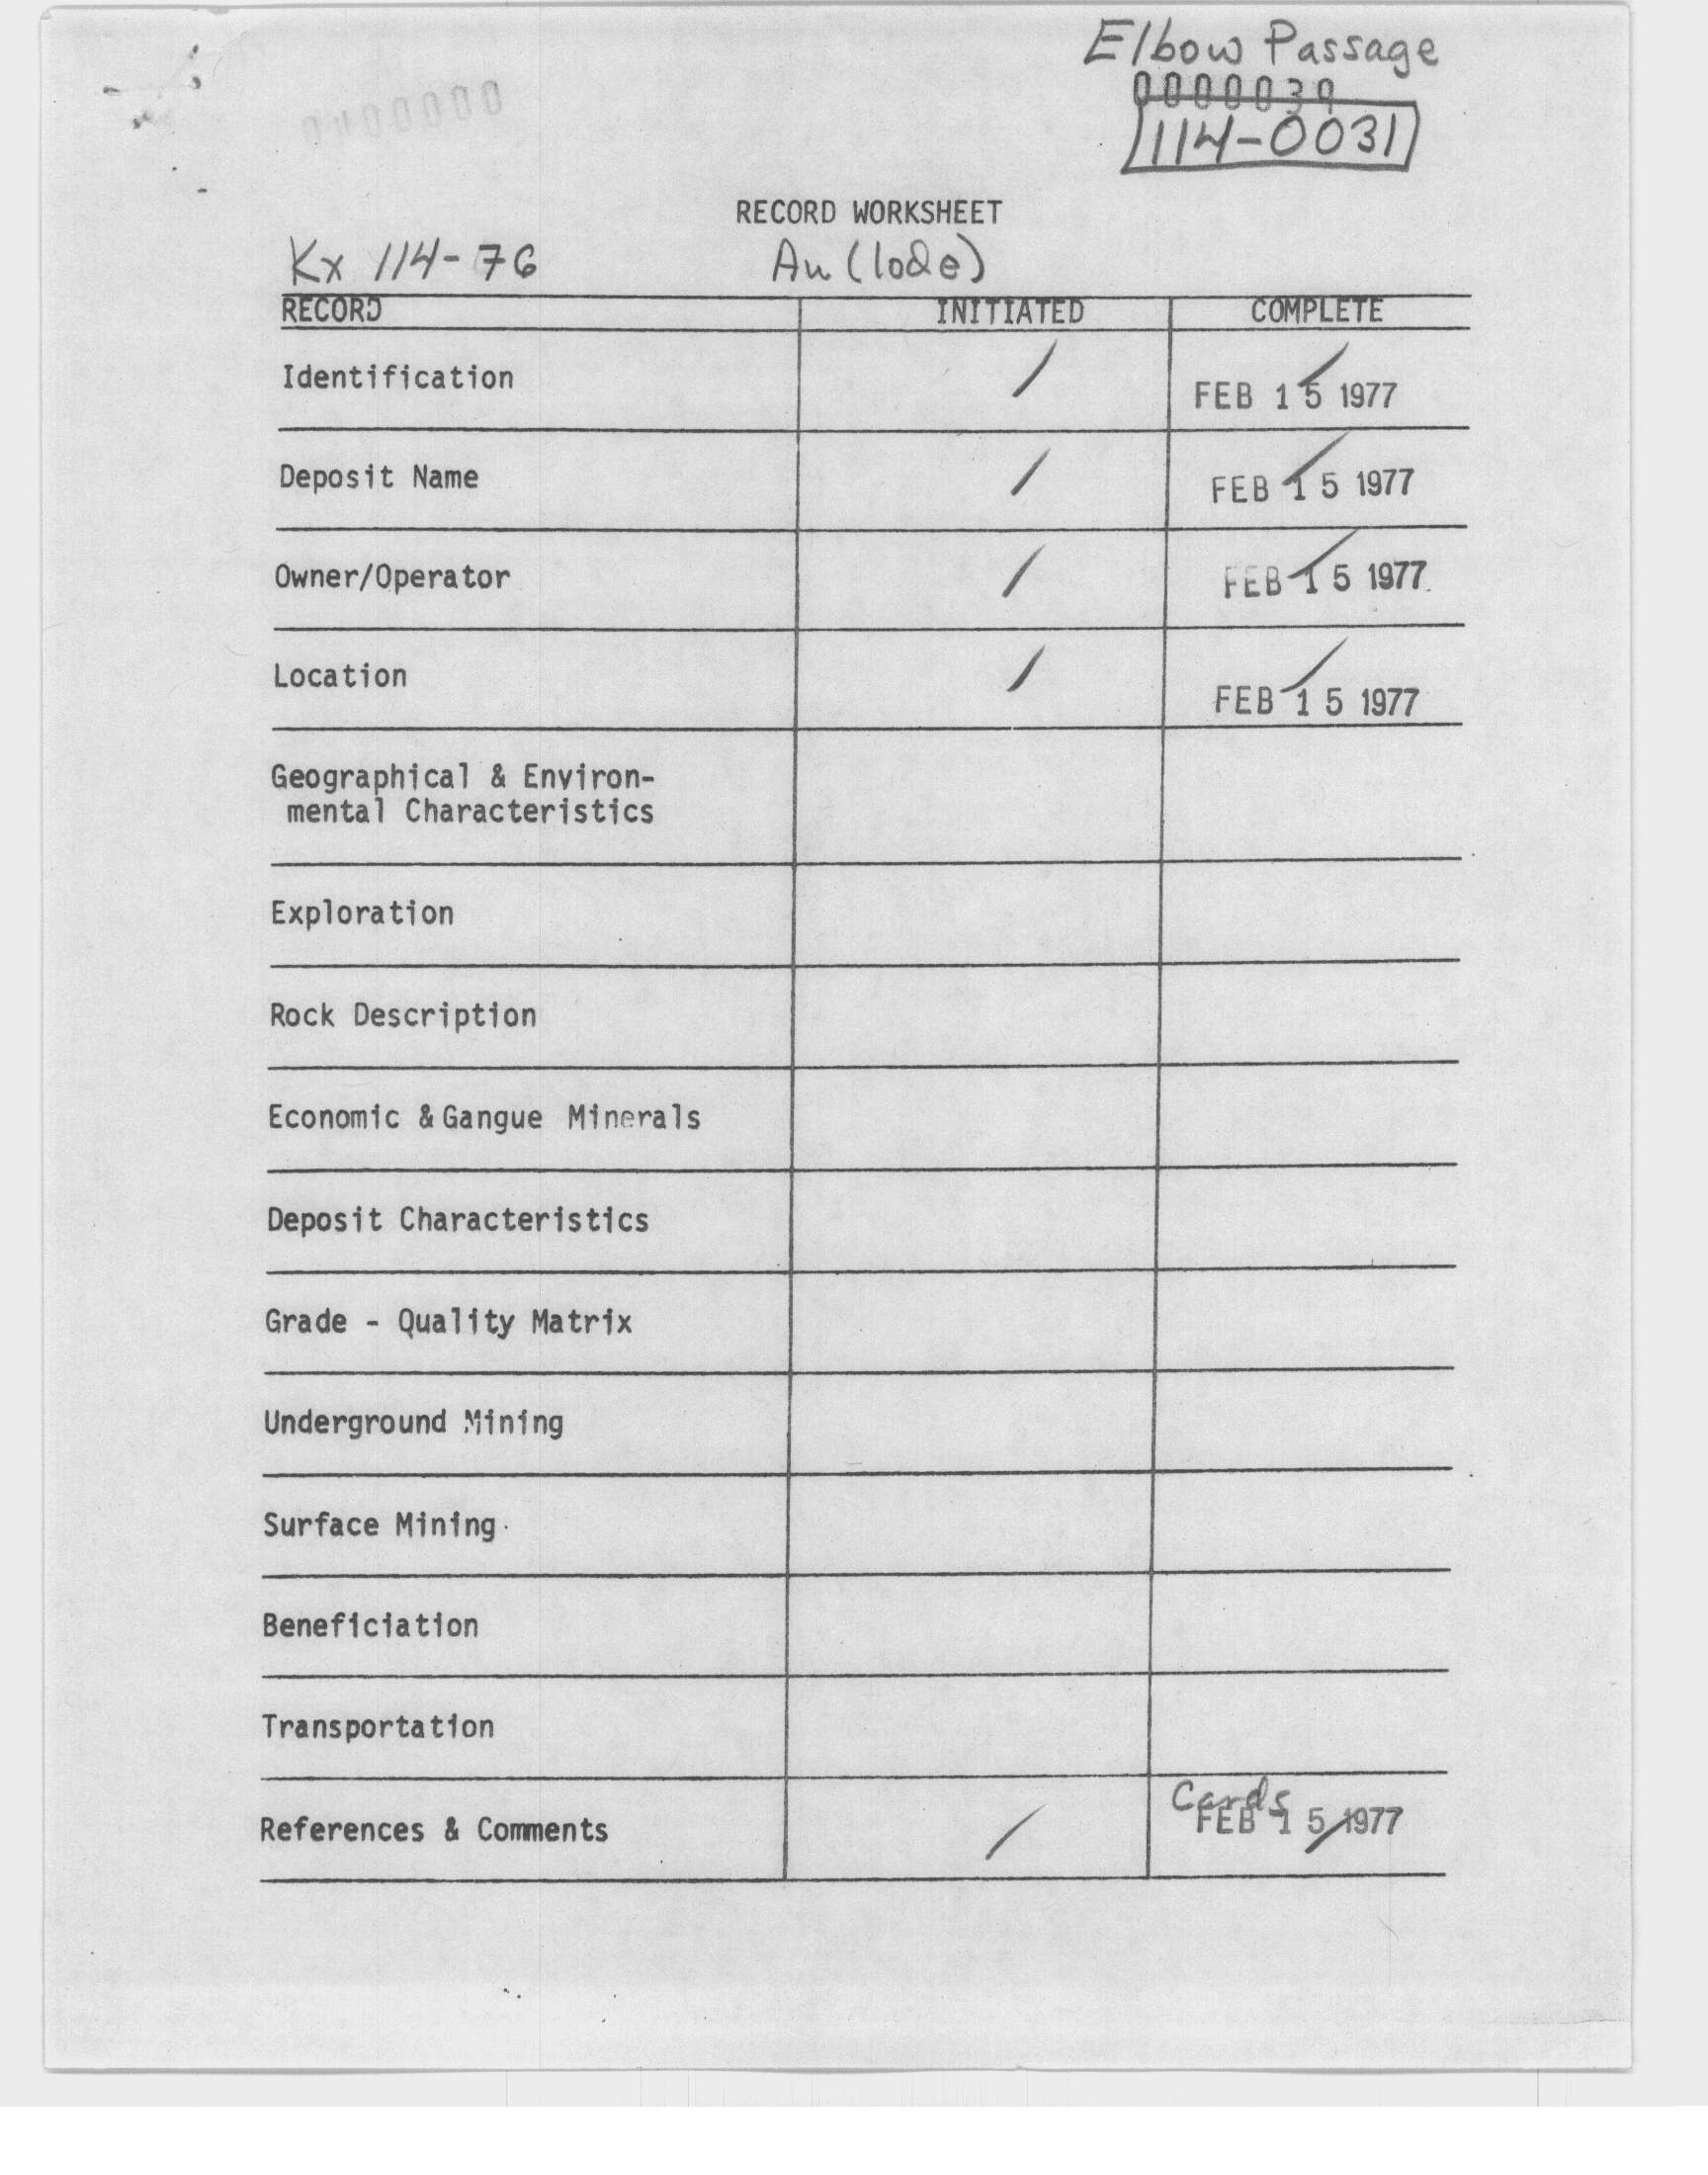 Elbow Passage
0000039
0400000
114-0031
RECORD WORKSHEET
Kx 114-76 Au (lode)
RECORD INITIATED COMPLETE
Identification / FEB 15 1977
Deposit Name / FEB 15 1977
Owner/Operator / FEB 15 1977
Location / FEB 15 1977
Geographical & Environ-
mental Characteristics
Exploration
Rock Description
Economic & Gangue Minerals
Deposit Characteristics
Grade - Quality Matrix
Underground Mining
Surface Mining
Beneficiation
Transportation
Cards
References & Comments / FEB 15 1977